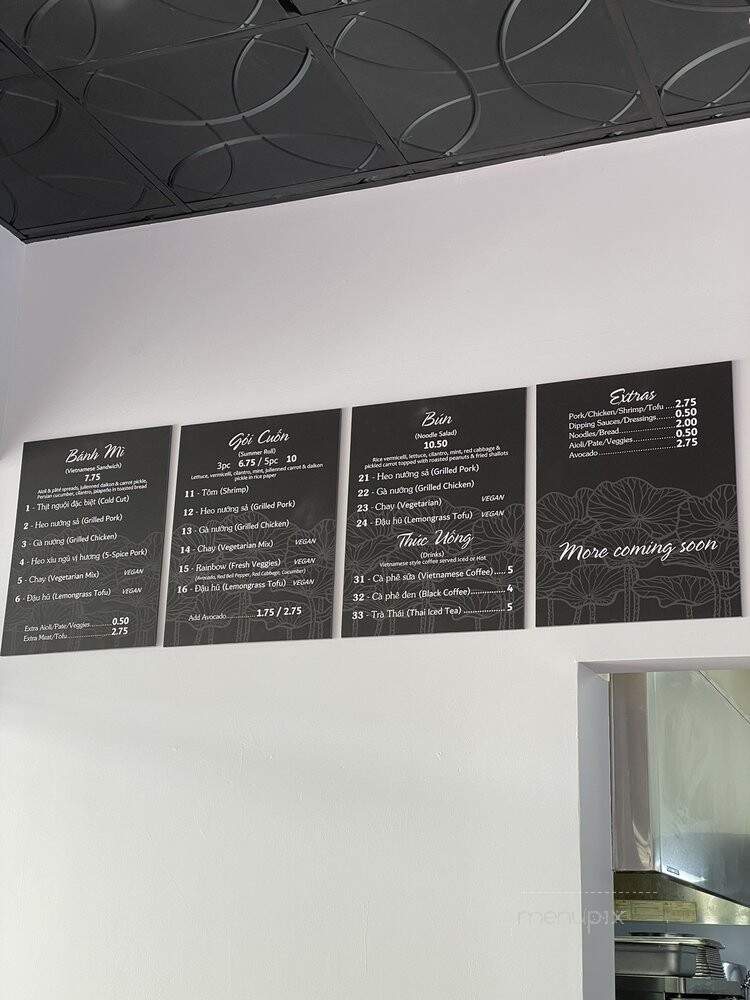 Bánh Mì
(Vietnamese Sandwich)
7.75
Aioli & pâté spreads, julienned daikon & carrot pickle,
Persian cucumber, cilantro, jalapeño in toasted bread
1 - Thịt nguội đặc biệt (Cold Cut)
2 - Heo nướng sả (Grilled Pork)
3 - Gà nướng (Grilled Chicken)
4 - Heo xíu ngũ vị hương (5-Spice Pork)
5 - Chay (Vegetarian Mix) VEGAN
6 - Đậu hủ (Lemongrass Tofu) VEGAN
Extra Aioli/Pate/Veggies 0.50
Extra Meat/Tofu 2.75
Gỏi Cuốn
(Summer Roll)
3pc 6.75 / 5pc 10
Lettuce, vermicelli, cilantro, mint, julienned carrot & daikon
pickle in rice paper
11 - Tôm (Shrimp)
12 - Heo nướng sả (Grilled Pork)
13 - Gà nướng (Grilled Chicken)
14 - Chay (Vegetarian Mix) VEGAN
15 - Rainbow (Fresh Veggies) VEGAN
(Avocado, Red Bell Pepper, Red Cabbage, Cucumber)
16 - Đậu hủ (Lemongrass Tofu) VEGAN
Add Avocado 1.75 / 2.75
Bún
(Noodle Salad)
10.50
Rice vermicelli, lettuce, cilantro, mint, red cabbage &
pickled carrot topped with roasted peanuts & fried shallots
21 - Heo nướng sả (Grilled Pork)
22 - Gà nướng (Grilled Chicken)
23 - Chay (Vegetarian) VEGAN
24 - Đậu hủ (Lemongrass Tofu) VEGAN
Thức Uống
(Drinks)
Vietnamese style coffee served Iced or Hot
31 - Cà phê sữa (Vietnamese Coffee) 5
32 - Cà phê đen (Black Coffee) 4
33 - Trà Thái (Thai Iced Tea) 5
Extras
Pork/Chicken/Shrimp/Tofu 2.75
Dipping Sauces/Dressings 0.50
Noodles/Bread 2.00
Aioli/Pate/Veggies 0.50
Avocado 2.75
More coming soon
menupix